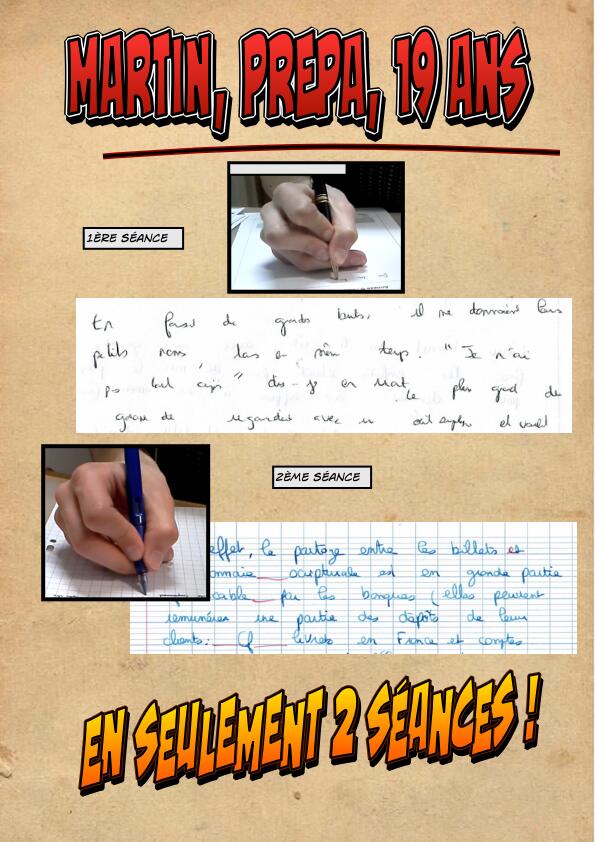 MARTIN, PREPA, 19 ANS
1ÈRE SÉANCE
En de grands buts, il me donnaient leurs
petits noms, en même temps. "Je n'ai
pas tout " dis-je en le plus grand des
regardait avec un et
2ÈME SÉANCE
effet, le partage entre les billets et
onnaie scripturale est en grande partie
cable par les banques (elles peuvent
rémunérer une partie des dépôts de leur
clients: livrets en France et comptes
EN SEULEMENT 2 SÉANCES !